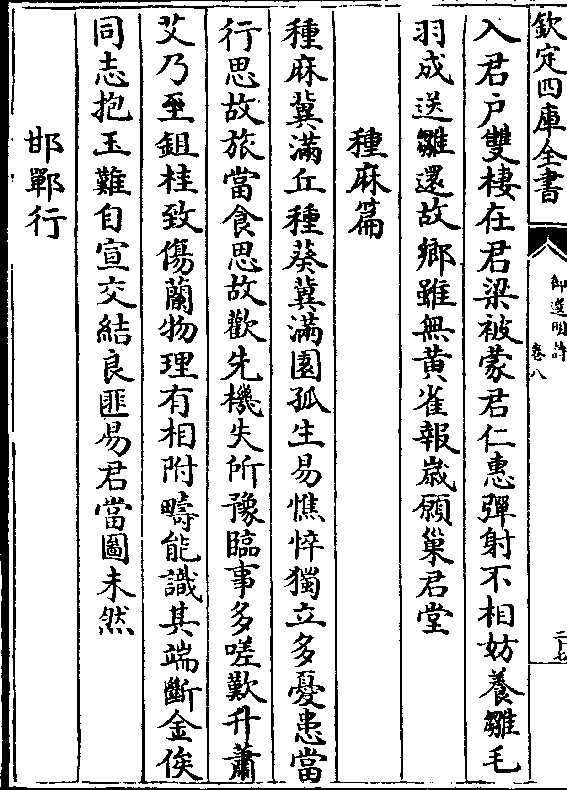 欽定四庫全書
御選明詩
卷八
二十七
入君户雙棲在君梁被蒙君仁惠彈射不相妨養雛毛
羽成送雛還故鄉雖無黄雀報嵗願巢君堂
種麻篇
種麻冀滿丘種葵冀滿園孤生易憔悴獨立多憂患當
行思故旅當食思故歡先機失所豫臨事多嗟歎升蕭
艾乃至鉏桂致傷蘭物理有相附疇能識其端斷金俟
同志抱玉難自宣交結良匪易君當圖未然
邯鄲行